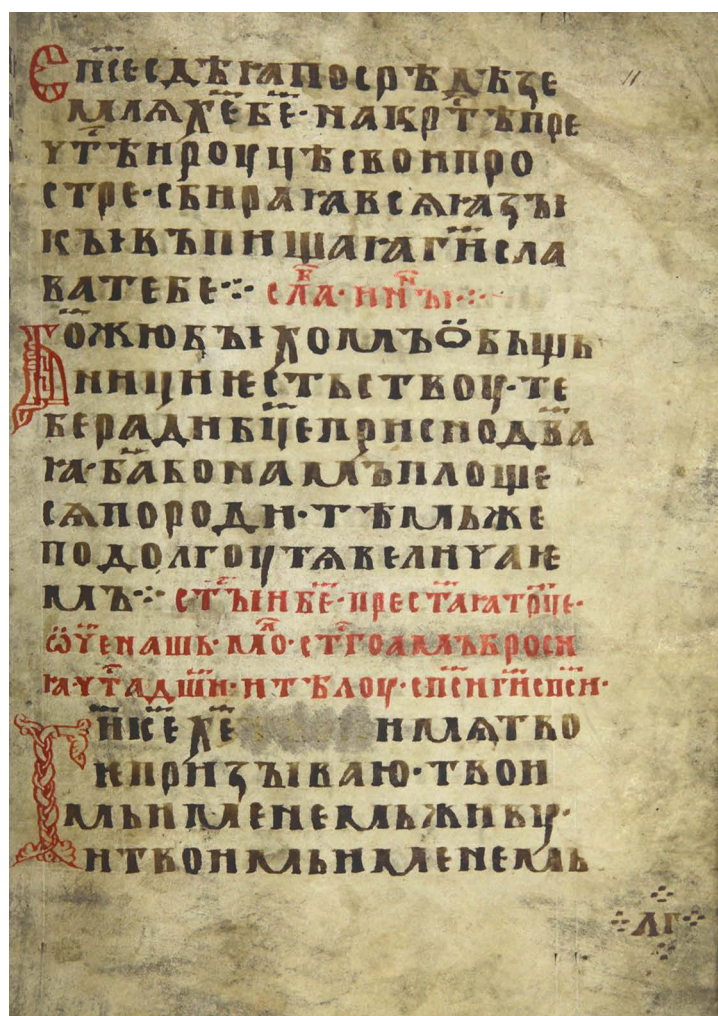 Сп҃се сдѣꙗ посрѣдѣ зе
мля х҃е б҃е · на крⷭ҇тѣ пре
чⷭ҇тѣи роуцѣ свои про
стре · сбираꙗ всѧ ꙗзъі
къі къпищаꙗ г҃и сла
ва тебе ⁘ сл҃а · и нн҃ъі ⁘
Б҃ожю бъі холмъ ѡбьщь
ници и ѥстьствоу · те
бе ради б҃це присно дв҃а
ꙗ · б҃а бо намъ площе
сѧ породи · тѣмьже
по долгоу тѧ величаѥ
мъ ⁘ с҃тъіи б҃е · прест҃аꙗ тр҃це ·
ѡч҃е нашь · мл҃о · ст҃го амъброси
ꙗ чⷭ҇та дш҃и · и тѣлоу · сп҃си г҃и сп҃си ·
Г҃и іс҃е х҃е имѧ тво
ѥ призъіваю · твои
мь именемь живу ·
и твоимь именемь
л҃г
11